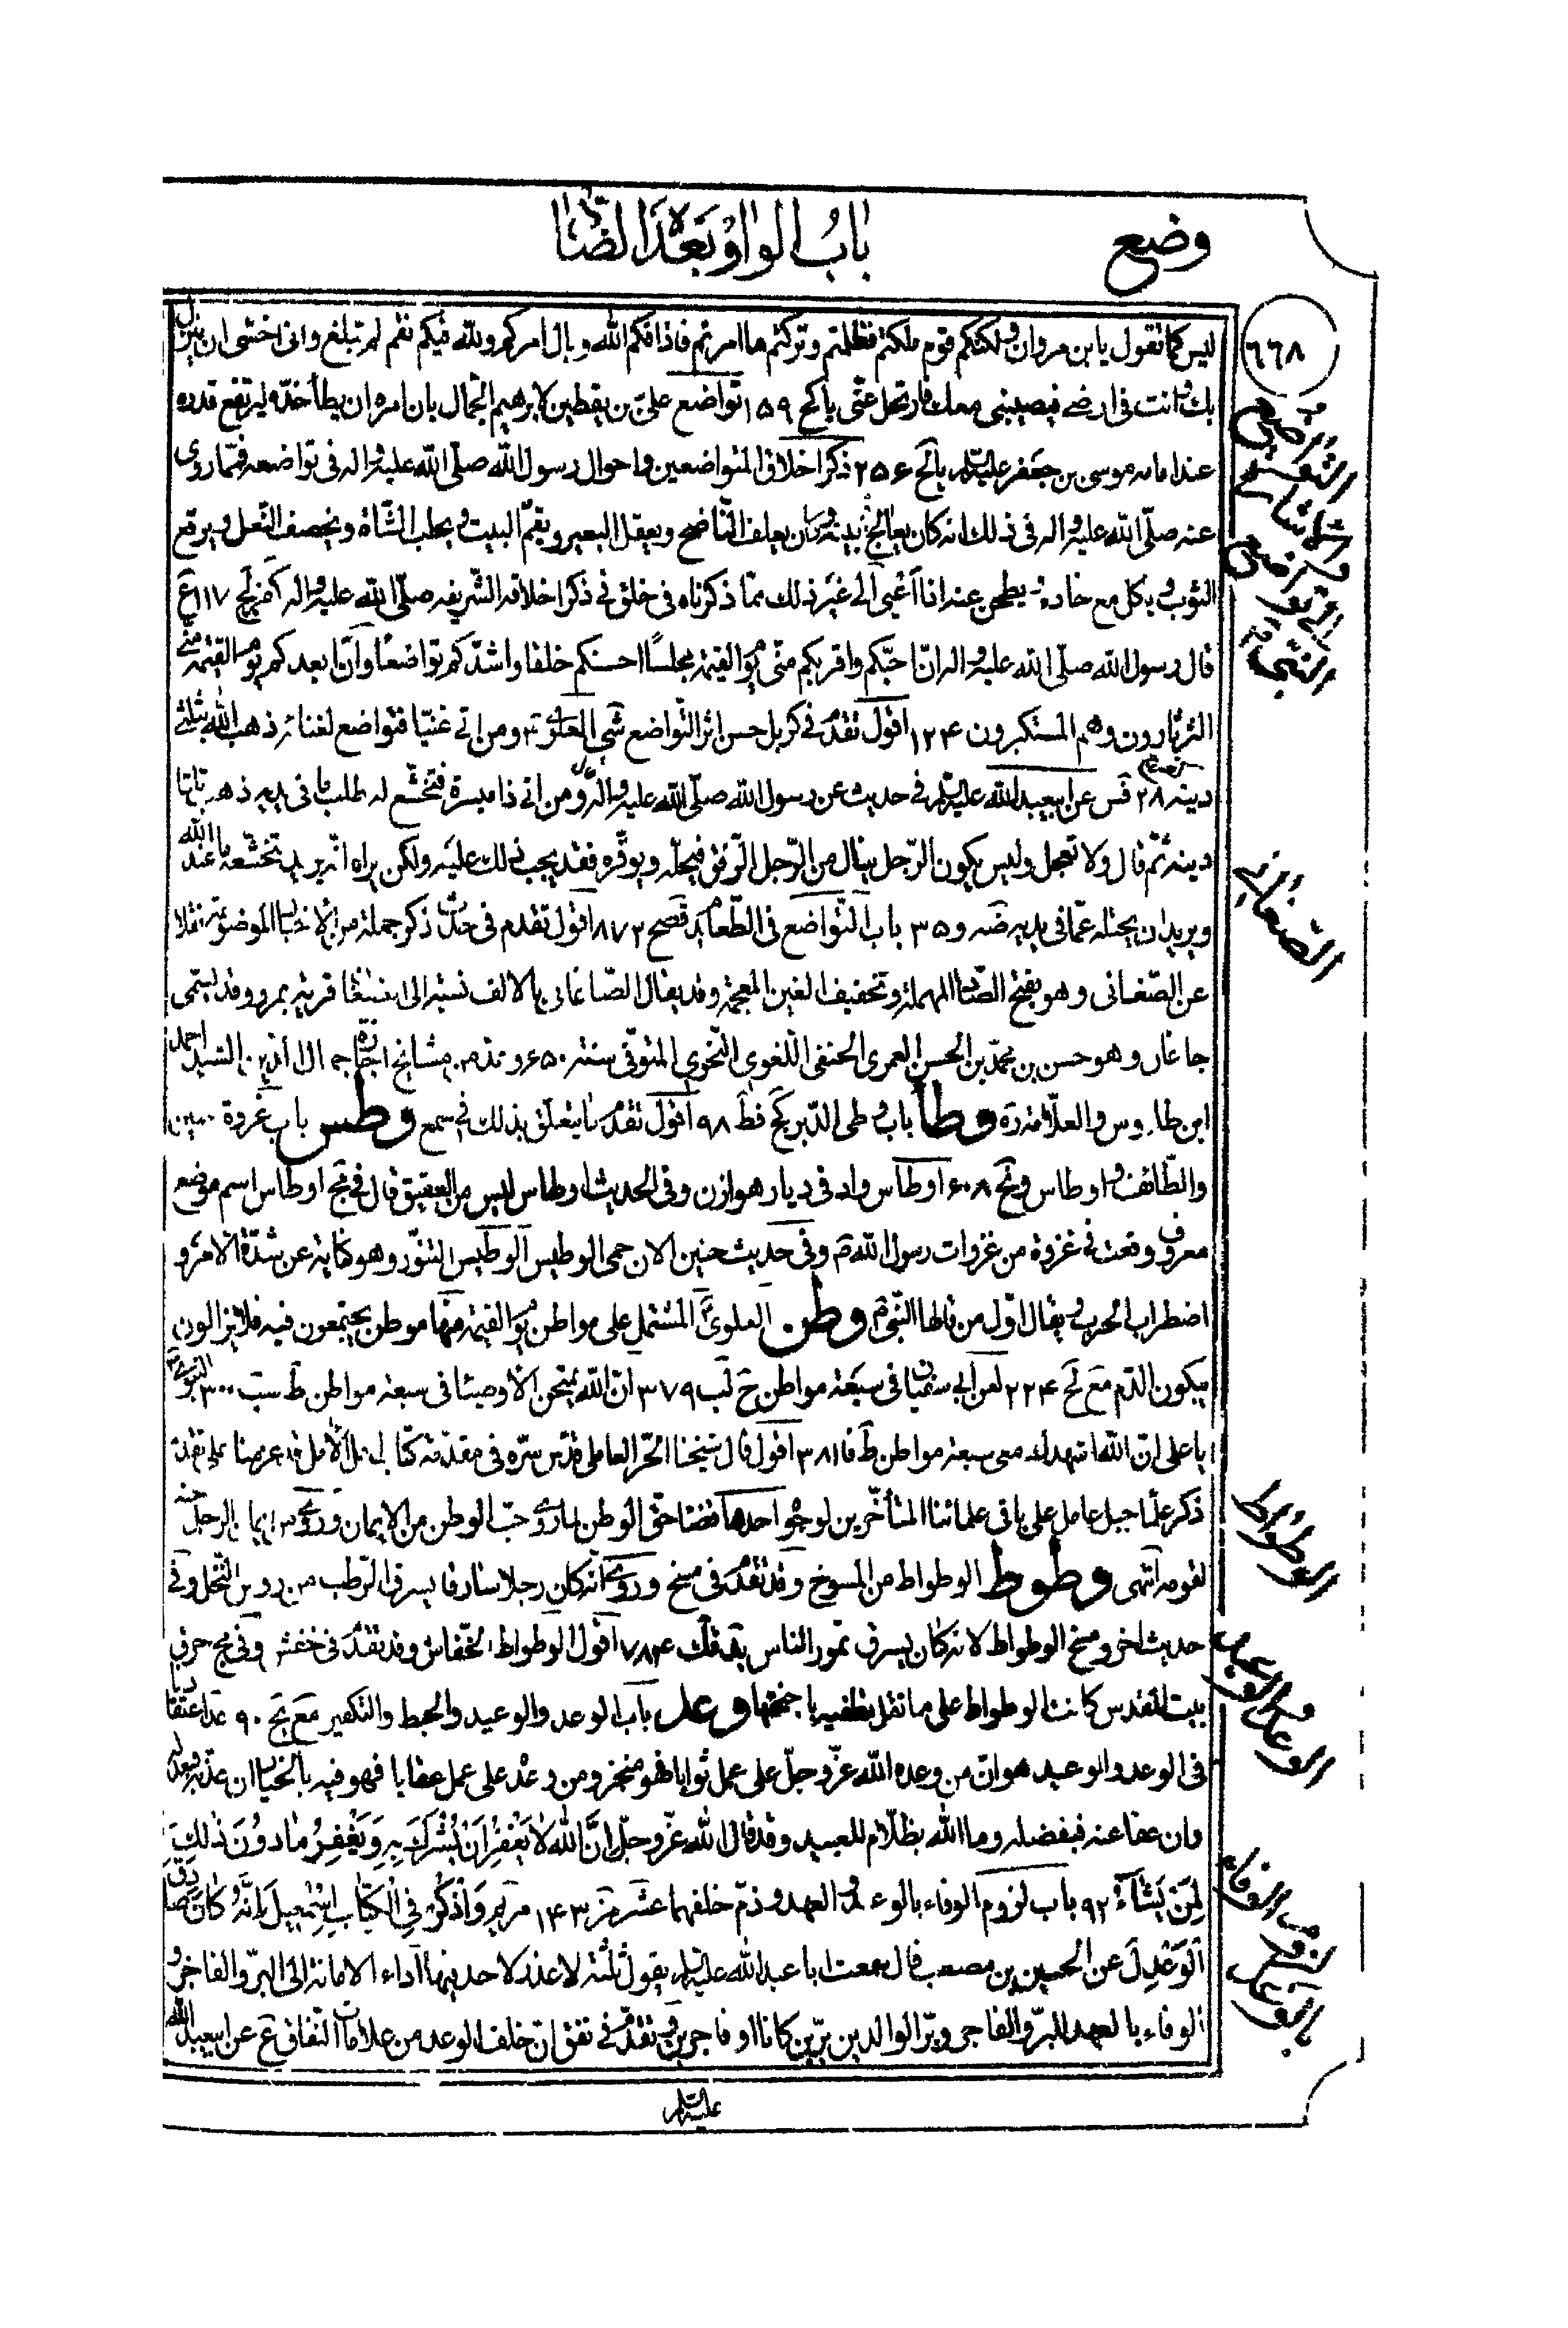 وضع
باب الواو بعده الضاد
٦٦٨
ليس كما تقول يا بن مروان ولكنكم قوم ملكتم فظلمتم وتركتم ما امرتم فاذاقكم الله وبال امركم ولله فيكم نقم لم تبلغ وانى اخشى ان ينزل
بك وانت فى ارضى فيصيبنى معك فارتحل عنّى يا كح ١٥٩ تواضع علىّ بن يقطين لابرهيم الجمال بان امره ان يطأ خدّه ليرتفع قدره
عند امامه موسى بن جعفر عليه السلام يا كح ٢٥۶ ذكر اخلاق المتواضعين واحوال رسول الله صلّى الله عليه واله فى تواضعه فممّا روى
عنه صلّى الله عليه واله فى ذلك انه كان يعلف النّاضح ويعقل البعير ويقمّ البيت ويحلب الشّاة ويخصف النّعل ويرقع
الثوب وياكل مع خادمه ويطحن عنه اذا أعيى الى غير ذلك ممّا ذكرناه فى خلق فى ذكر اخلاقه الشّريفه صلّى الله عليه واله ١١٧
قال رسول الله صلّى الله عليه واله انّ احبّكم واقربكم منّى يوم القيمة مجلسًا احسنكم خلقا واشدّكم تواضعًا وانّ ابعدكم يوم القيمة منّى
الثرثارون وهم المستكبرون ١٢۴ اقول تقدّم فى كربل حسن اثر التّواضع ومن اتى غنيّا فتواضع لغنائه ذهب الله بثلثى
دينه ٢٨ عن ابيعبد الله عليه السلام فى حديث عن رسول الله صلّى الله عليه واله ومن اتى ذا ميسرة فتخشّع له طلب ما فى يديه ذهب ثلثا
دينه ثمّ قال ولا تعجل وليس يكون الرّجل ينال من الرّجل الرّفق فيجلّه ويوقّره فقد يجب ذلك عليه ولكن يراه انّه يريد بتخشّعه ما عند الله
ويريد ان يختله عمّا فى يديه ضه و ٣٥ باب التّواضع فى الطّعام ٨٧٢ اقول تقدم فى ذكر جملة من الاخبار الموضوعة نقلا
عن الصّغانى وهو بفتح الصّاد المهملة وتخفيف الغين المعجمة وقد يقال الصّاغانى بالالف نسبة الى قرية بمرو وقد يسمّى
جاغان وهو حسن بن محمّد بن الحسن العمرى الحنفى اللّغوى النّحوى المتوفّى سنة ۶٥٠ من مشايخ اجازة جمال الدّين السّيد احمد
ابن طاوس والعلّامة ره وطأ باب وطى الدّبر كج قط ٩٨ اقول تقدّم ما يتعلّق بذلك فى سمع وطس باب غزوة حنين
والطّائف واوطاس ونح ۶٠٨ اوطاس واد فى ديار هوازن وفى الحديث اوطاس ليس من العقيق قال فى مج اوطاس اسم موضع
معروف وقعت فى غزوة من غزوات رسول الله ص وفى حديث حنين الان حمى الوطيس الوطيس التنّور وهو كناية عن شدّة الامر و
اضطراب الحرب ويقال اوّل من قالها النّبىّ ص وطن العلوىّ المشتمل على مواطن يوم القيمة منها موطن يجتمعون فيه فلا يزالون
يبكون الدّم مع لح ٢٢۴ لعن ابى سفيان فى سبعة مواطن ح لب ٣٧٩ انّ الله يمتحن الاوصياء فى سبعة مواطن ط سب ٣٠٠ النبوى ص
يا على انّ الله اشهدك معى سبعة مواطن ط فا ٣٨١ اقول قال شيخنا الحرّ العاملى قدّس سرّه فى مقدّمة كتاب امل الآمل قد عزمنا على تقديم
ذكر علماء جبل عامل على باقى علمائنا المتأخّرين لوجوه احدها قضاء حقّ الوطن لما روى حبّ الوطن من الايمان وروى من ايمان الرجل حبه
لقومه انتهى وطوط الوطواط من المسوخ وقد تقدّم فى مسخ وروى انّه كان رجلا سارقا يسرق الرّطب من رؤس النّخل وفى
حديث اخر ومسخ الوطواط لانه كان يسرق تمور الناس يد قك ٧٨۴ اقول الوطواط الخفّاش وقد تقدّم فى خفش وفى مج حرق
بيت المقدس كانت الوطواط على ما نقل تطفيه باجنحتها وعد باب الوعد والوعيد والحبط والتكفير مع يج ٩٠ عد اعتقادنا
فى الوعد والوعيد هو انّ من وعده الله عزّ وجلّ على عمل ثوابا فهو منجزه ومن وعده على عمل عقابا فهو فيه بالخيار ان عذّبه فبعدله
وان عفا عنه فبفضله وما الله بظلّام للعبيد وقد قال الله عزّ وجلّ إنَّ اللهَ لا يَغْفِرُ اَنْ يُشْرَكَ بِهِ وَيَغْفِرُ مٰا دُونَ ذٰلِكَ
لِمَنْ يَشٰآءُ ٩٢ باب لزوم الوفاء بالوعد والعهد وذمّ خلفهما عشر مز ١۴٣ مريم وَاذْكُرْ فِى الْكِتٰابِ اِسْمٰعِيلَ اِنَّهُ كٰانَ صٰادِقَ
الْوَعْدِ ل عن الحسين بن مصعب قال سمعت ابا عبد الله عليه السلام يقول ثلثة لا عذر لاحد فيها اداء الامانة الى البرّ والفاجر و
الوفاء بالعهد للبرّ والفاجر وبرّ الوالدين برّين كانا او فاجرين تقدّم فى نفق انّ خلف الوعد من علامات النّفاق ع عن ابيعبد الله
عليه السلام
الصّغانى
الوطواط
الوعد والوعيد
لزوم الوفاء
بالوعد